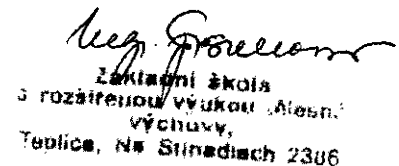 Mgr.
Základní škola
s rozšířenou výukou tělesn.
výchovy,
Teplice, Na Stínadlech 2386